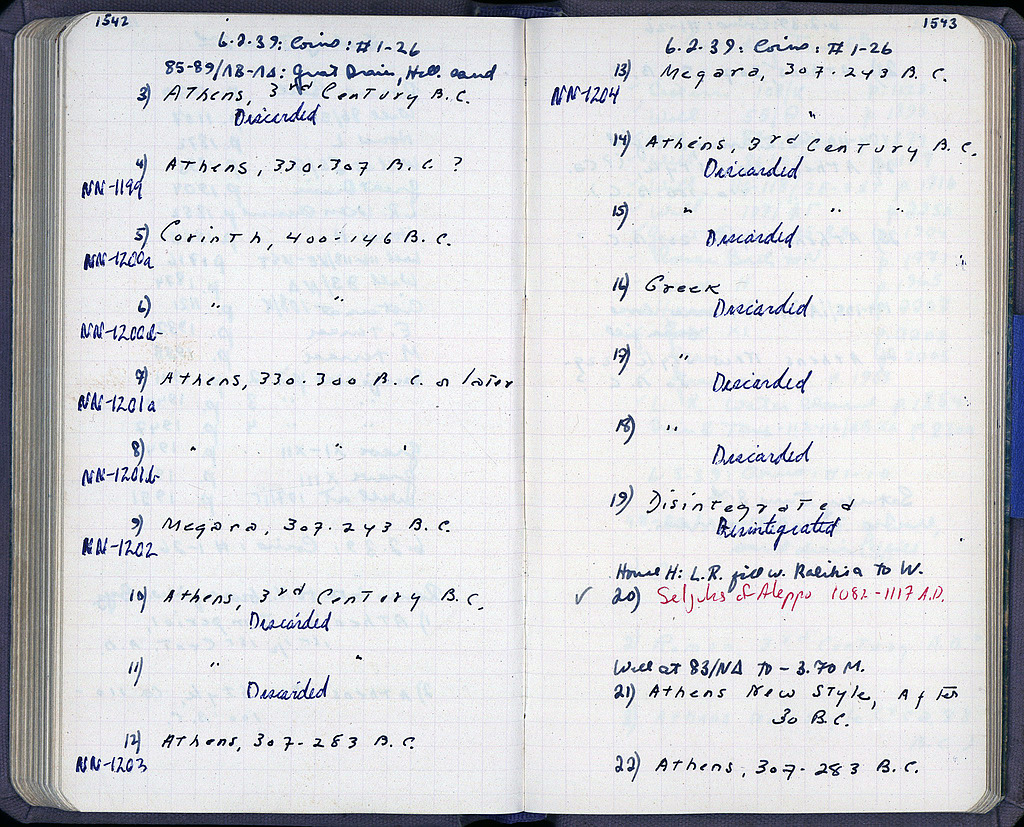 1542
6.2.39: Coins: #1-26
85-89/ΛΒ-ΛΔ: Great Drain, Hell. sand
3) Athens, 3rd Century B.C.
Discarded
4) Athens, 330-307 B.C.?
NN-1199
5) Corinth, 400-146 B.C.
NN-1200a
6) " "
NN-1200b
7) Athens, 330-300 B.C. or later
NN-1201a
8) " " "
NN-1201b
9) Megara, 307-243 B.C.
NN-1202
10) Athens, 3rd Century B.C.
Discarded
11) " "
Discarded
12) Athens, 307-283 B.C.
NN-1203
1543
6.2.39: Coins: #1-26
13) Megara, 307-243 B.C.
NN-1204
14) Athens, 3rd Century B.C.
Discarded
15) " " "
Discarded
16) Greek
Discarded
17) "
Discarded
18) "
Discarded
19) Disintegrated
Disintegrated
House H: L.R. fill w. to W.
✓ 20) Seljuks of Aleppo 1082-1117 A.D.
Well at 83/ΝΔ to -3.70 M.
21) Athens New Style, After
30 B.C.
22) Athens, 307-283 B.C.